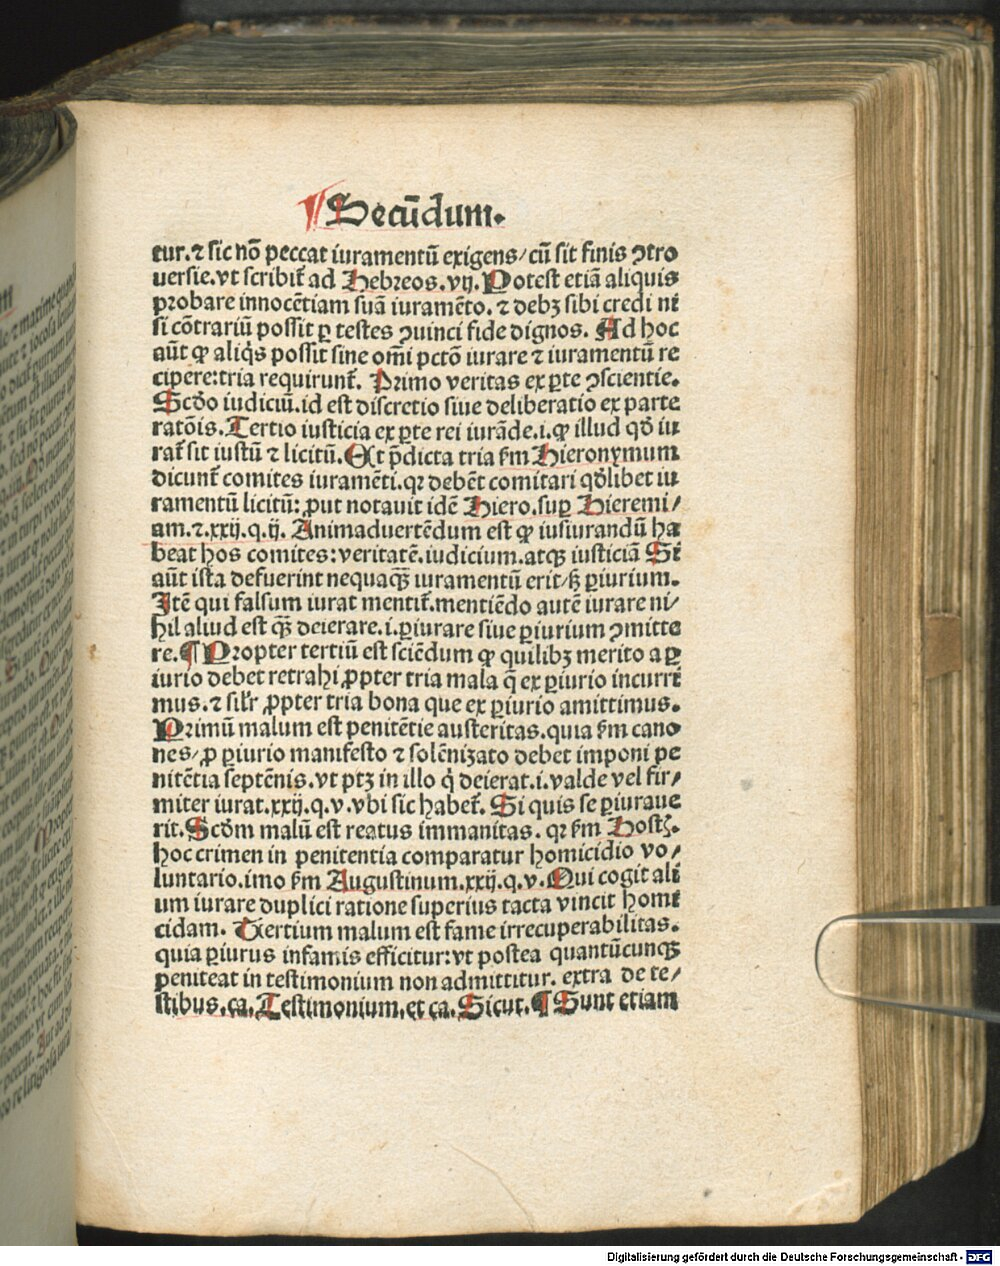 ¶ Secūdum.
tur. ⁊ sic nō peccat iuramentū exigens/ cū sit finis ꝯtro
uersie. vt scribit᷑ ad Hebreos. vij. Potest etiā aliquis
probare innocētiam suā iuramēto. ⁊ debꝫ sibi credi ni
si cōtrariū possit ꝑ testes ꝯuinci fide dignos. Ad hoc
aūt ꝙ aliq̇s possit sine om̄i pctō iurare ⁊ iuramentū re
cipere: tria requirunt᷑. Primo veritas ex ꝑte ꝯscientie.
Scd̄o iudiciū. id est discretio siue deliberatio ex parte
ratōis. Tertio iusticia ex ꝑte rei iurāde. i. ꝙ illud qd̄ iu
rat᷑ sit iustū ⁊ licitū. Et p̄dicta tria ẜm Hieronymum
dicunt᷑ comites iuramēti. qꝛ debēt comitari qd̄libet iu
ramentū licitū: ꝓut notauit idē Hiero. suꝑ Hieremi/
am. ⁊. xxij. q. ij. Animaduertēdum est ꝙ iusiurandū ha
beat hos comites: veritatē. iudicium. atqꝫ iusticiā Si
aūt ista defuerint nequaqꝫ̄ iuramentū erit/ sꝫ ꝑiurium.
Itē qui falsum iurat mentit᷑. mentiēdo autē iurare ni/
hil aliud est qꝫ̄ deierare. i. ꝑiurare siue ꝑiurium ꝯmitte
re. ¶ Propter tertiū est sciēdum ꝙ quilibꝫ merito a ꝑ
iurio debet retrahi ꝓpter tria mala q̄ ex ꝑiurio incurri
mus. ⁊ sil̓r ꝓpter tria bona que ex ꝑiurio amittimus.
Primū malum est penitētie austeritas. quia ẜm cano
nes/ ꝓ ꝑiurio manifesto ⁊ solēnizato debet imponi pe
nitētia septēnis. vt ptꝫ in illo q̇ deierat. i. valde vel fir/
miter iurat. xxij. q. v. vbi sic habet᷑. Si quis se ꝑiuraue
rit. Scd̄m malū est reatus immanitas. qꝛ ẜm Hostꝫ.
hoc crimen in penitentia comparatur homicidio vo/
luntario. imo ẜm Augustinum. xxij. q. v. Qui cogit ali
um iurare duplici ratione superius tacta vincit homi
cidam. Tertium malum est fame irrecuperabilitas.
quia ꝑiurus infamis efficitur: vt postea quantūcunqꝫ
peniteat in testimonium non admittitur. extra de te/
stibus. ca. Testimonium. et ca. Sicut. ¶ Sunt etiam
Digitalisierung gefördert durch die Deutsche Forschungsgemeinschaft - DFG